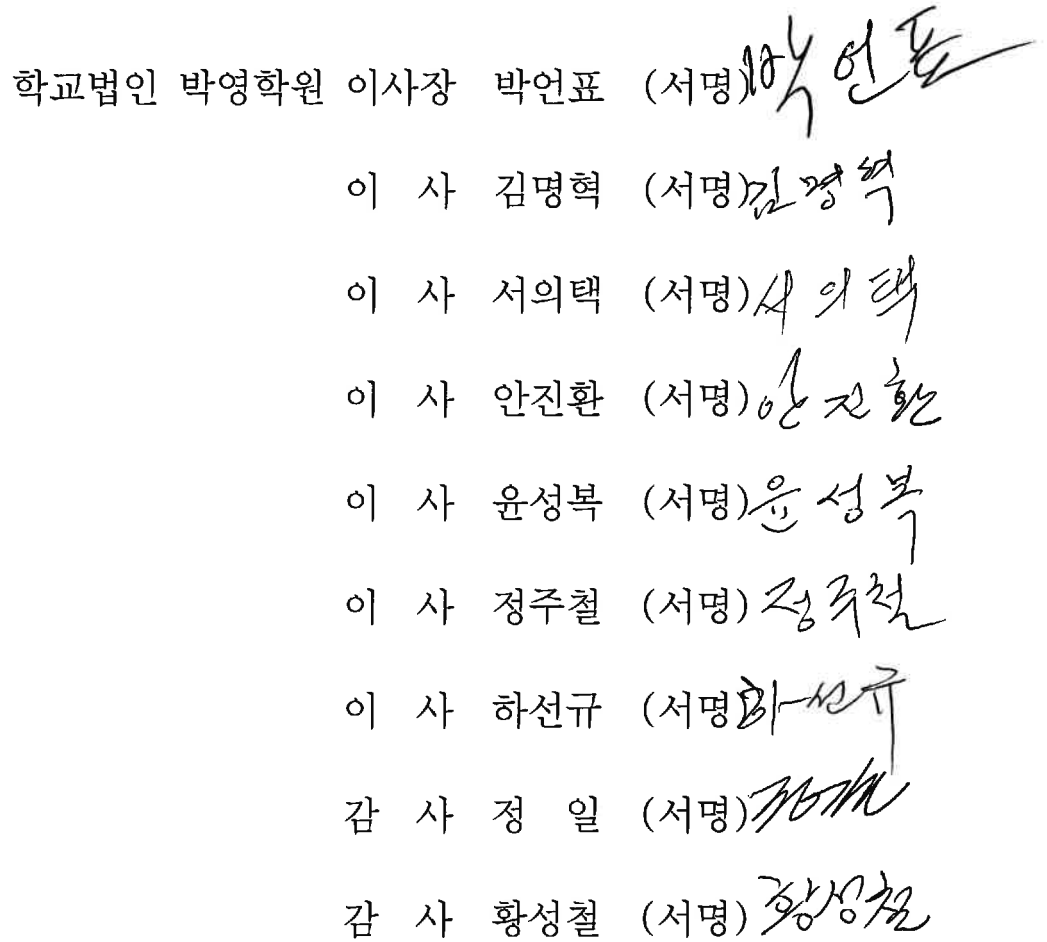 학교법인 박영학원 이사장 박언표 (서명) 박언표
이 사 김명혁 (서명) 김명혁
이 사 서의택 (서명) 서의택
이 사 안진환 (서명) 안진환
이 사 윤성복 (서명) 윤성복
이 사 정주철 (서명) 정주철
이 사 하선규 (서명) 하선규
감 사 정 일 (서명)
감 사 황성철 (서명) 황성철